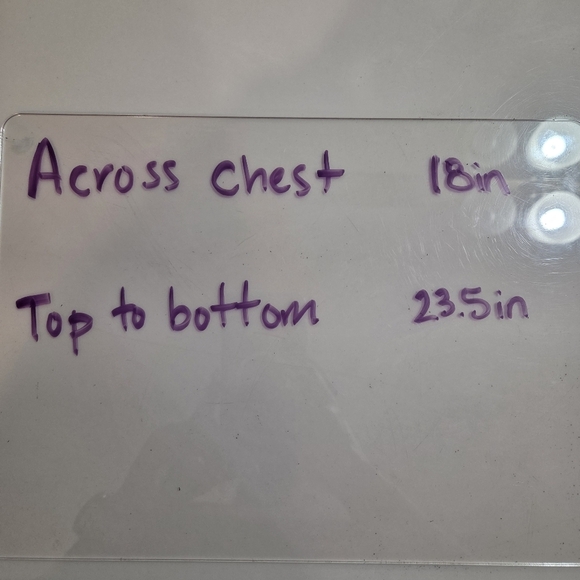 Across chest 18in
Top to bottom 23.5in